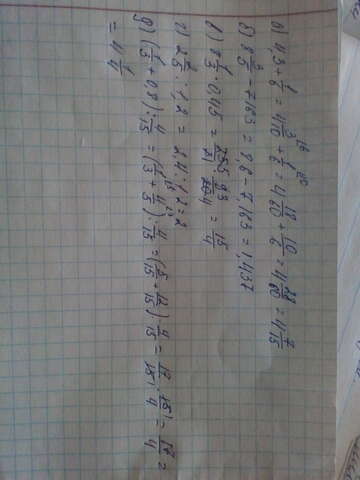 а) 4,3 + 1/6 = 4 3/10 + 1/6 = 4 18/60 + 10/60 = 4 28/60 = 4 7/15
б) 8 3/5 - 7,163 = 8,6 - 7,163 = 1,437
в) 8 1/3 · 0,45 = = 15/4
г) 2 2/5 : 1,2 = 2,4 : 1,2 = 2
д) (1/3 + 0,8) : 4/15 = (1/3 + 4/5) : 4/15 = (5/15 + 12/15) : 4/15 = 17/15 · 15/4 = 17/4 =
= 4 1/4